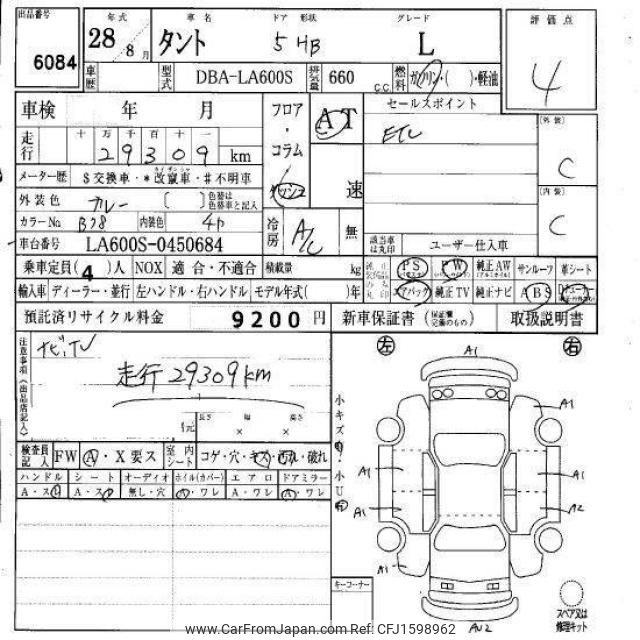 出品番号 年式 車名 ドア 形状 グレード 評価点
6084 28 8月 タント 5 HB L 4
車歴 型式 DBA-LA600S 排気量 660 C.C. 燃料 ガソリン・( )・軽油
車検 年 月 フロア・コラム AT セールスポイント
走行 十万千百十一 ETC [外装]
29309 km C
メーター歴 $交換車・*改竄車・#不明車 速 [内装]
外装色 〔 〕色替は色替車と記入 C
カラーNo B78 内装色 冷房 A/C 無 該当車は丸印 ユーザー仕入車
車台番号 LA600S-0450684
乗車定員(4)人 NOX 適合・不適合 積載量 kg PS PW 純正AW サンルーフ 革シート
輸入車 ディーラー・並行 左ハンドル・右ハンドル モデル年式( )年 エアバック 純正TV 純正ナビ ABS
預託済リサイクル料金 9200 円 新車保証書 (保証継交換のもの) 取扱説明書
注意事項(出品店記入) ナビ、TV 左 A1 右
走行 29309km
長さ 幅 高さ
元 × ×
小キズ・小U A1
検査員記入 FW A・X要ス 室内シート コゲ・穴・キズ・汚れ・破れ
ハンドル シート オーディオ ホイル(カバー) エアロ ドアミラー A1 A1
A・ス A・ス 無し・穴 A・ワレ A・ワレ A・ワレ A1 A2
A1
キーコーナー
スペア又は修理キット
AU2
www.CarFromJapan.com Ref: CFJ1598962